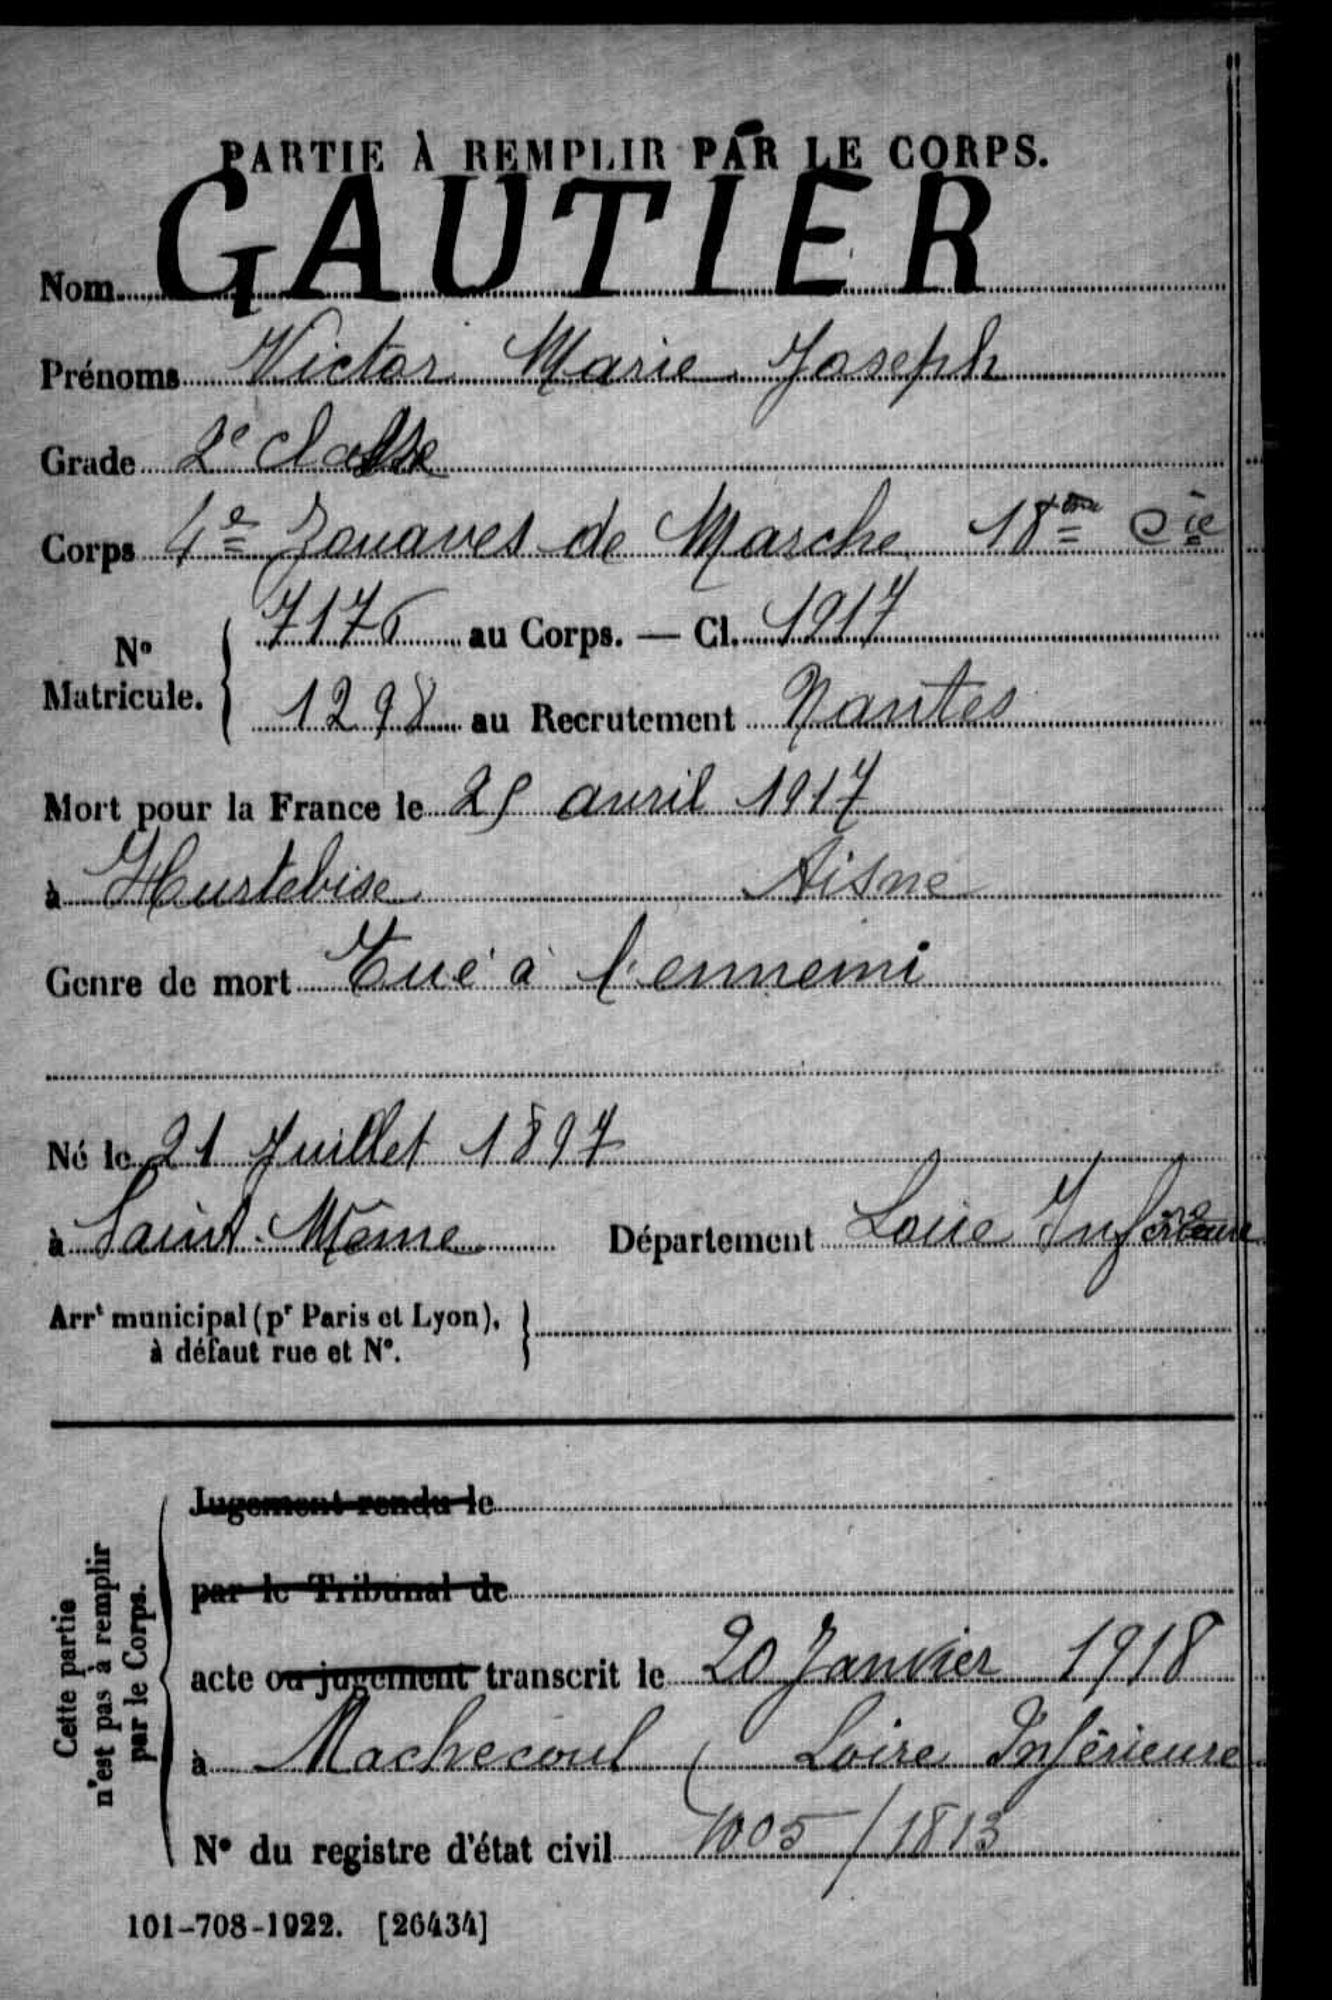 PARTIE À REMPLIR PAR LE CORPS.
Nom GAUTIER
Prénoms Victor Marie Joseph
Grade 2e Classe
Corps 4e Zouaves de Marche 18me Cie
No Matricule. { 7176 au Corps. — Cl. 1917
1298 au Recrutement Nantes
Mort pour la France le 25 avril 1917
à Hurtebise Aisne
Genre de mort Tué à l'ennemi
Né le 21 Juillet 1897
à Saint-Même Département Loire Inférieure
Arrt municipal (pr Paris et Lyon),
à défaut rue et No.
Cette partie
n'est pas à remplir
par le Corps.
Jugement rendu le
par le Tribunal de
acte ou jugement transcrit le 20 Janvier 1918
à Machecoul ( Loire Inférieure
No du registre d'état civil 1005/1813
101-708-1922. [26434]